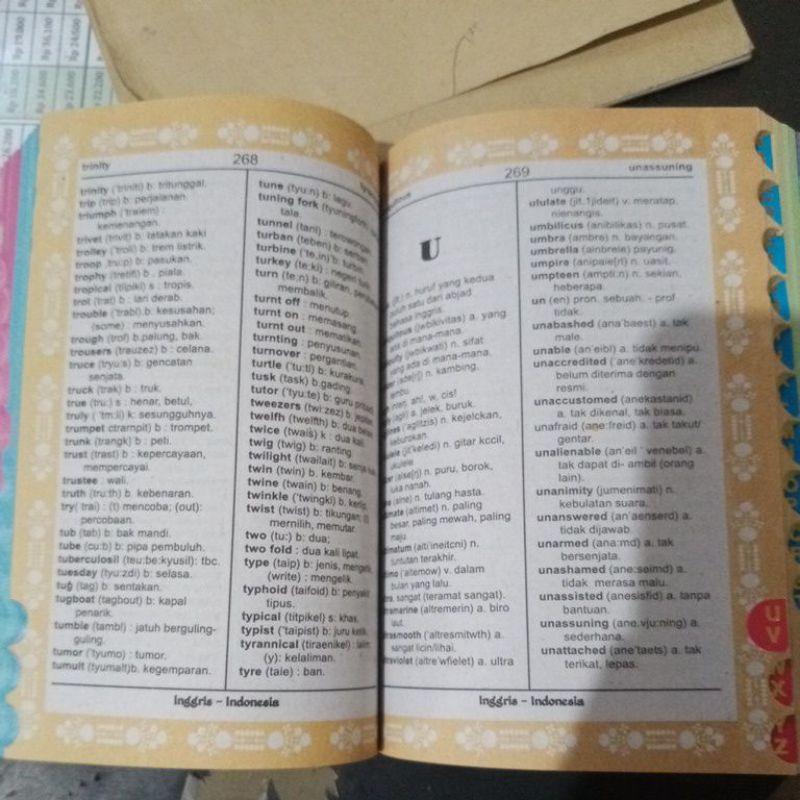 Rp 19.000
Rp 36.100
Rp 24.600
trinity 268
trinity ('triniti) b: tritunggal.
trip (trip) b: perjalanan.
triumph ('traiem) :
kemenangan.
trivet (trivit) b: tatakan kaki
trolley ('troli) b: trem listrik.
troop (tru:p) b: pasukan.
trophy (tretifi) b . piala.
tropical (tlipikl) s : tropis.
trot (trat) b : lari derab.
trouble ('trabl) b: kesusahan;
(some) : menyusahkan.
trough (trof) b.palung, bak.
trousers (trauzez) b : celana.
truce (tryu:s) b: gencatan
senjata.
truck (trak) b : truk.
true (tru:) s : henar, betul,
truly ('trn:ii) k: sesungguhnya.
trumpet ctrarnpit) b : trompet.
trunk (trangk) b : peti.
trust (trast) b : kepercayaan,
mempercayai.
trustee : wali.
truth (tru:th) b: kebenaran.
try( trai) : (t) mencoba; (out):
percobaan.
tub (tab) b: bak mandi.
tube (cu:b) b: pipa pembuluh.
tuberculosil (teu:be:kyusil): tbc.
tuesday (tyu:zdi) b: selasa.
tug (tag) b: sentakan.
tugboat (tagbout) b: kapal
penarik.
tumble (tambl) : jatuh berguling-
guling.
tumor ('tyumo) : tumor.
tumult (tyumalt)b. kegemparan.
tune (tyu:n) b: lagu.
tuning fork (tyuningfork)
tala.
tunnel (tanl) : terowongan.
turban (teben) b: serban.
turbine ('te,in) b: turbin.
turkey (te:ki) : negeri turki.
turn (te:n) b: giliran,
membalik.
turnt off : menutup.
turnt on : memasang.
turnt out : mematikan.
turnting : penyusunan.
turnover : pergantian.
turtle ('tu:tl) b: kurakura.
tusk (task) b.gading.
tutor ('tyu:te) b: guru pribadi.
tweezers (twi:zez) b: jepitan.
twelfh (twelfth) b: dua belas.
twice (twais) k : dua kali.
twig (twig) b: ranting.
twilight (twailait) b:
twin (twin) b. kembar.
twine (twain) b: benang.
twinkle ('twingki) b: kerlip.
twist (twist) b: tikungan; (t)
mernilih, memutar.
two (tu:) b: dua;
two fold : dua kali lipat.
type (taip) b: jenis,
(write) : mengelik.
typhoid (taifoid) b: penyakit
tipus.
typical (titpikel) s: khas.
typist ('taipist) b: juru ketik.
tyrannical (tiraenikel) : lalim;
(y): kelaliman.
tyre (taie) : ban.
Inggris – Indonesia
269 unassuning
U
n. huruf yang kedua
puluh satu dari abjad
bahasa inggris.
(jwbikivitas) a. yang
ada di mana-mana.
(jwbikwati) n. sifat
yang ada di mana-mana.
n. kambing.
ah!, w, cis!
a. jelek, buruk.
('aglitzis) n. kejelckan,
keburokan.
(jit'keledi) n. gitar kccil,
ukulele
n. puru, borok,
luka nanah.
n. tulang hasta.
(altimet) n. paling
besar, paling mewah, paling
maju.
(alti'ineitcni) n.
tuntutan terakhir.
('altemow) v. dalam
bulan yang lalu.
sangat (teramat sangat).
(altremerin) a. biro
laut.
('altresmitwth) a.
sangat licin/lihai.
(altre'wfielet) a. ultra
unggu.
ululate (jit.1jideit) v. meratap,
nienangis.
umbilicus (anibilikas) n. pusat.
umbra (ambre) n. bayangan.
umbrella (ainbrele) payunig.
umpira (anipaie[r]) n. uasit.
umpteen (ampti:n) n. sekian,
heberapa.
un (en) pron. sebuah. - prof
tidak.
unabashed (ana'baest) a. tak
male.
unable (an'eibl) a. tidak menipu.
unaccredited (`ane`kredetid) a.
belum diterima dengan
resmi.
unaccustomed (anekastanid)
a. tak dikenal, tak biasa.
unafraid (ane:freid) a. tak takut/
gentar.
unalienable (an'eil ' venebel) a.
tak dapat di- ambil (orang
lain).
unanimity (jumenimati) n.
kebulatan suara.
unanswered (an'aenserd) a.
tidak dijawab.
unarmed (ana:md) a. tak
bersenjata.
unashamed (ane:seimd) a.
tidak merasa malu.
unassisted (anesisfid) a. tanpa
bantuan.
unassuning (ane.vju:ning) a.
sederhana.
unattached (ane'taets) a. tak
terikat, lepas.
Inggris – Indonesia
U
V
X
Z